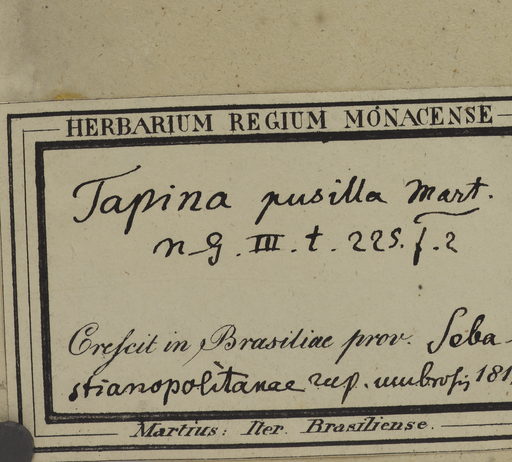 HERBARIUM REGIUM MONACENSE
Tapina pusilla Mart.
n. G. III. t. 225. f. 2
Crescit in Brasiliae prov. Seba-
stianopolitanae rup. umbrosis, 181
Martius: Iter. Brasiliense.